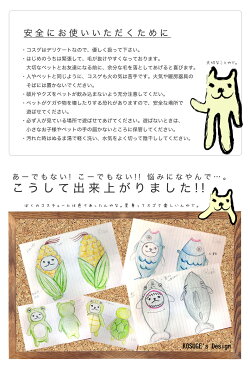 安全にお使いいただくために
・コスゲはデリケートなので、優しく扱って下さい。
・はじめのうちは緊張して、毛が抜けやすくなっております。
大切なペットとお友達になる前に、余分な毛を落としてあげると喜びます。
・人やペットと同じように、コスゲも火の気は苦手です。火気や暖房器具の
そばには置かないでください。
・綿片やクズをペットが飲み込まないよう充分注意してください。
・ペットがケガや物を壊したりする恐れがありますので、安全な場所で
遊ばせてください。
・必ず人が見ている場所で遊ばせてあげてください。遊ばないときは、
小さなお子様やペットの手の届かないところに保管してください。
・汚れた時はぬるま湯で軽く洗い、水気をよく切って陰干ししてください。
大切なことやで。
あーでもない! こーでもない!! 悩みになやんで…。
こうして出来上がりました!!
KOSUGE's Design